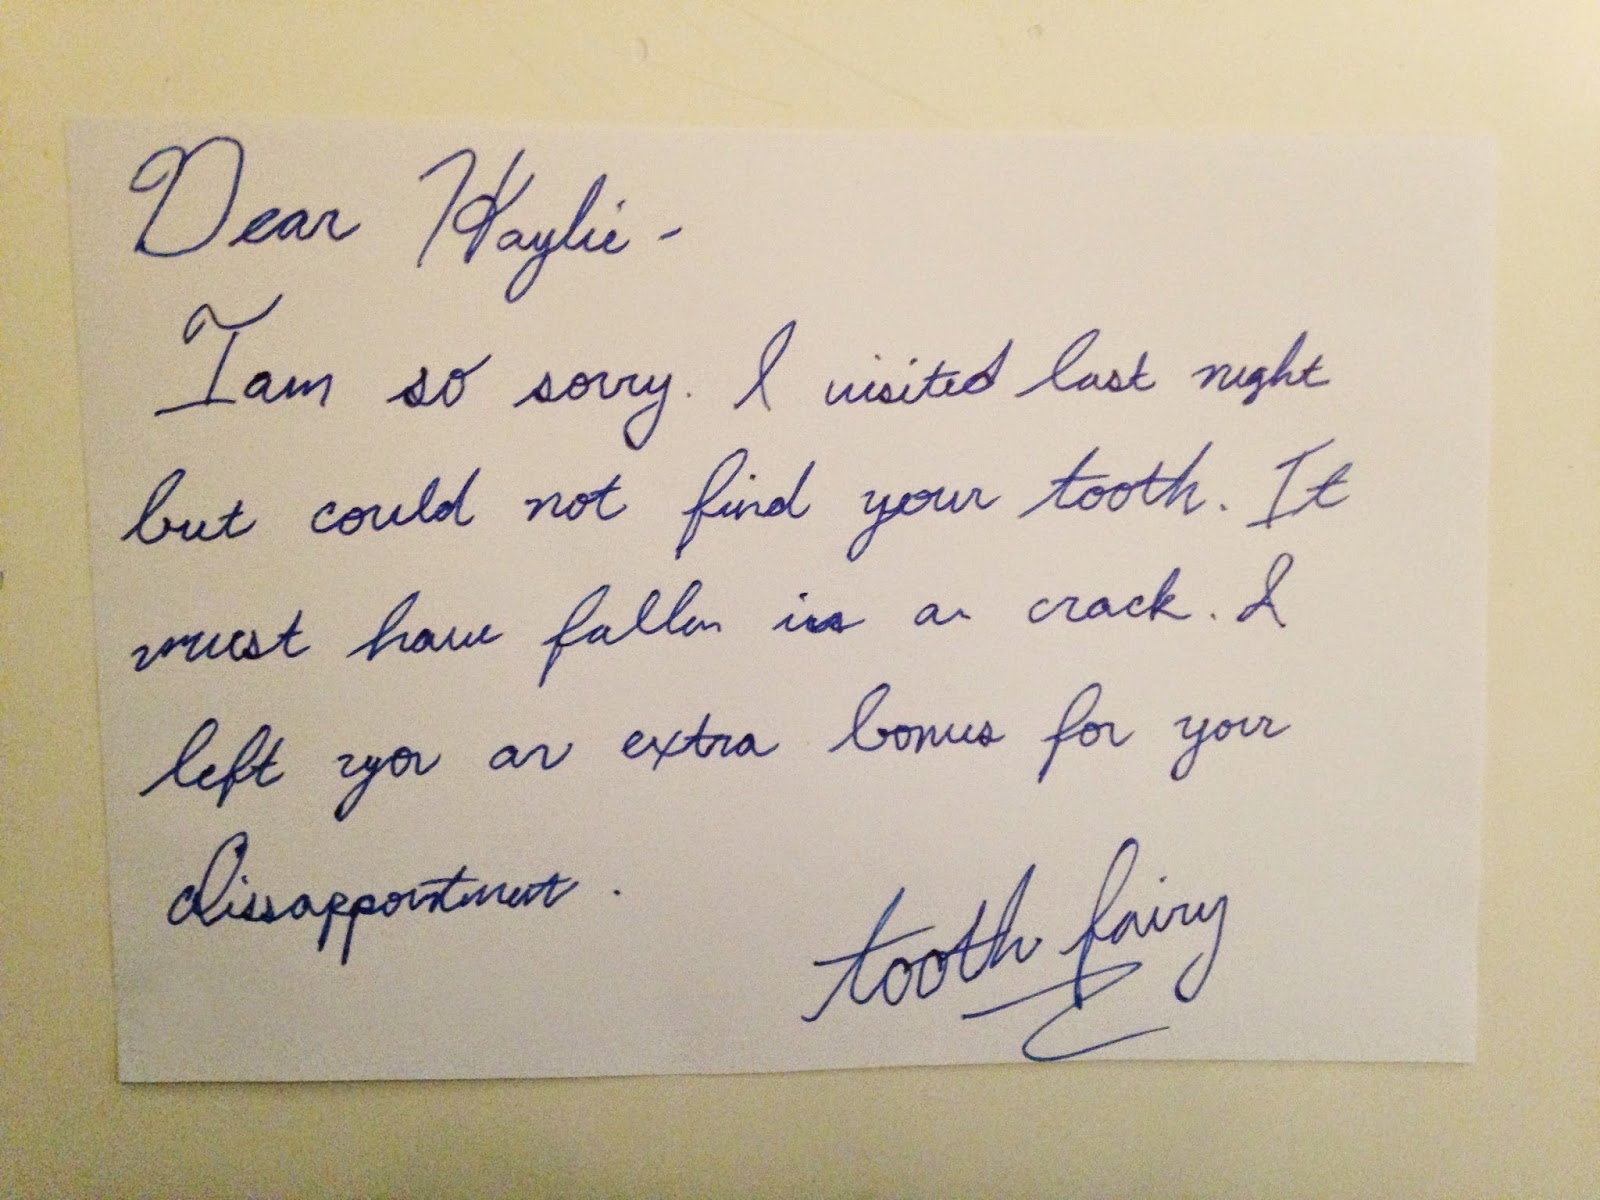 Dear Kaylie -
I am so sorry. I visited last night
but could not find your tooth. It
must have fallen in a crack. I
left you an extra bonus for your
dissappointment.
tooth fairy